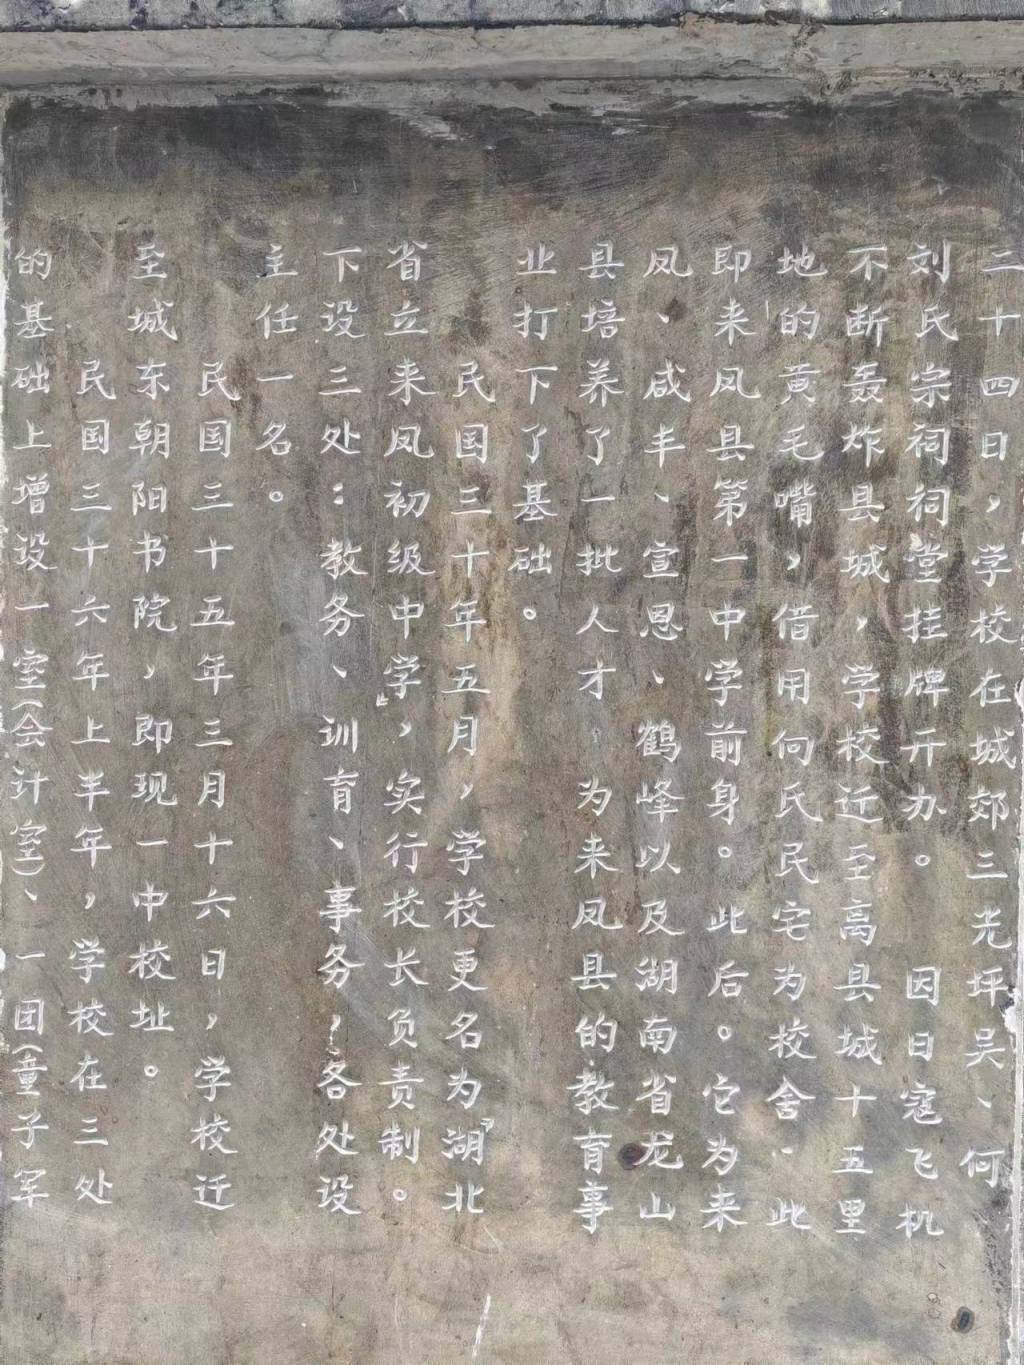 二十四日，学校在城郊三光坪吴、何
刘氏宗祠祠堂挂牌开办。因日寇飞机
不断轰炸县城，学校迁至离县城十五里
地的黄毛嘴，借用向氏民宅为校舍。此
即来凤县第一中学前身。此后。它为来
凤、咸丰、宣恩、鹤峰以及湖南省龙山
县培养了一批人才。为来凤县的教育事
业打下了基础。
民国三十年五月，学校更名为“湖北
省立来凤初级中学”，实行校长负责制。
下设三处：教务、训育、事务，各处设
主任一名。
民国三十五年三月十六日，学校迁
至城东朝阳书院，即现一中校址。
民国三十六年上半年，学校在三处
的基础上增设一室（会计室）、一团（童子军